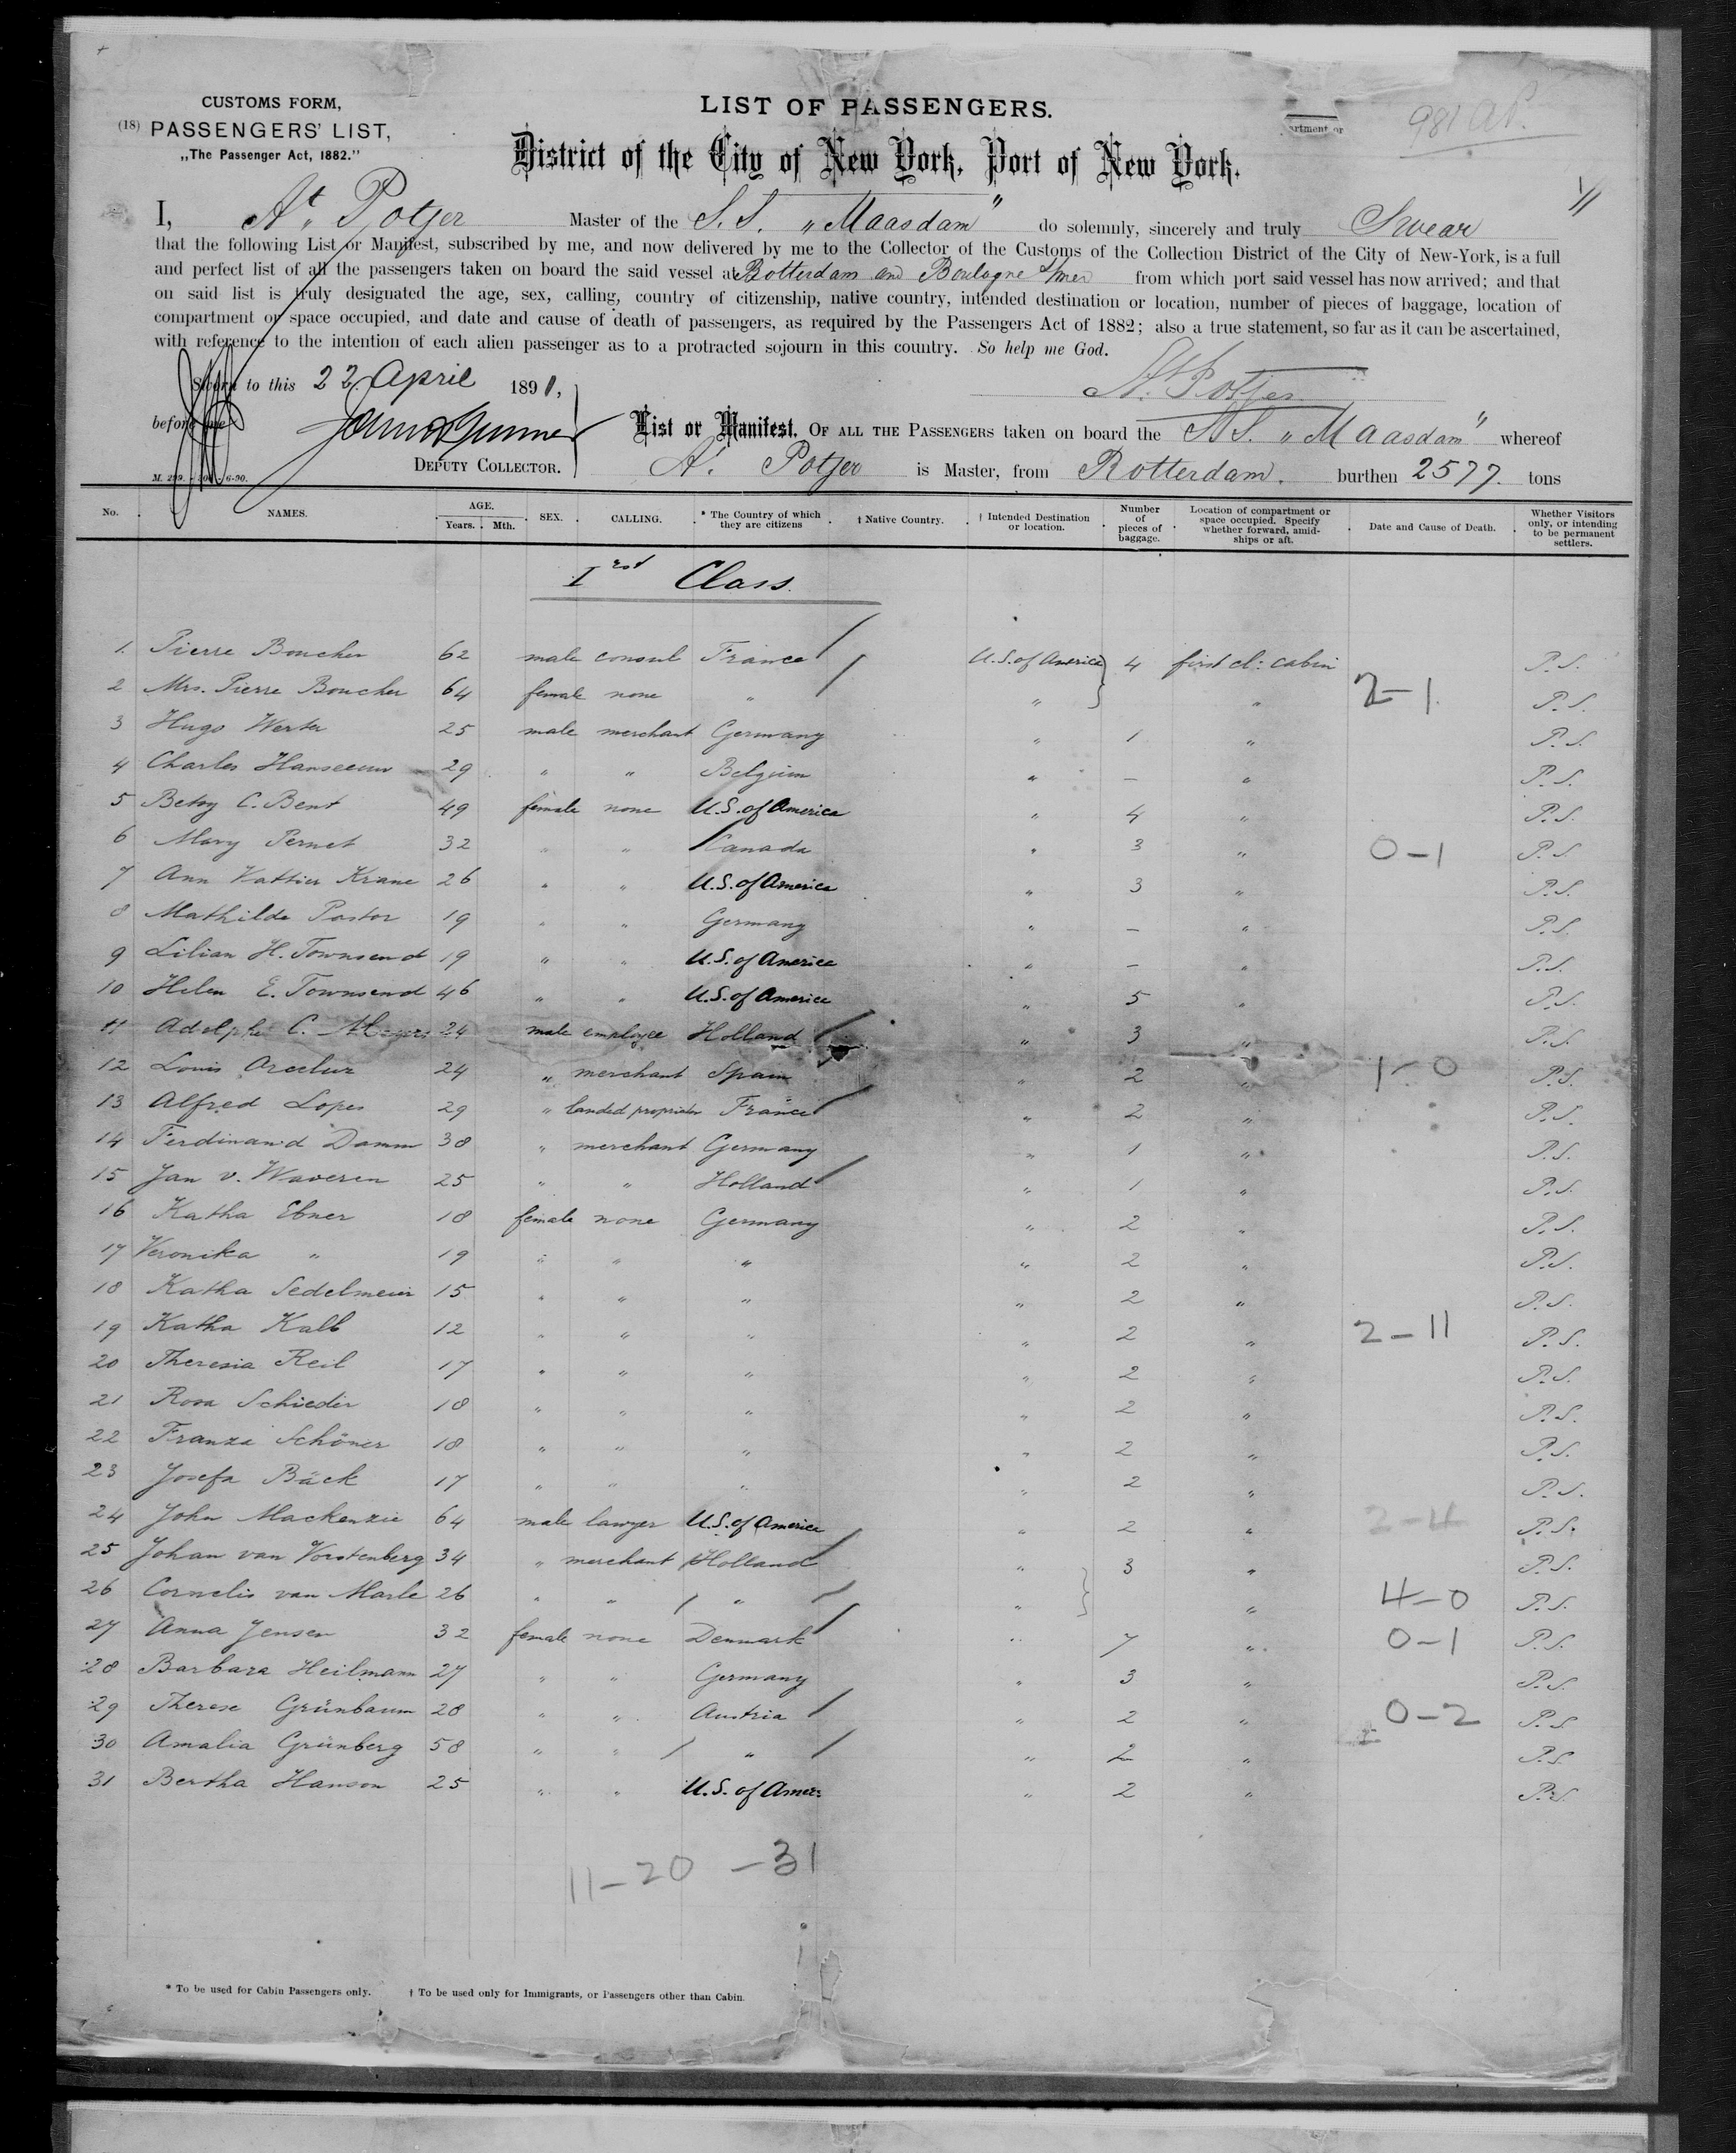 CUSTOMS FORM,
(18) PASSENGERS' LIST,
„The Passenger Act, 1882."
LIST OF PASSENGERS.
artment or
981
District of the City of New York, Port of New York.
I, At. Potjer Master of the S.S. „Maasdam" do solemnly, sincerely and truly Swear
that the following List or Manifest, subscribed by me, and now delivered by me to the Collector of the Customs of the Collection District of the City of New-York, is a full
and perfect list of all the passengers taken on board the said vessel at Rotterdam and Boulogne s/mer from which port said vessel has now arrived; and that
on said list is truly designated the age, sex, calling, country of citizenship, native country, intended destination or location, number of pieces of baggage, location of
compartment or space occupied, and date and cause of death of passengers, as required by the Passengers Act of 1882; also a true statement, so far as it can be ascertained,
with reference to the intention of each alien passenger as to a protracted sojourn in this country. So help me God.
Sworn to this 22 April 1891,
At. Potjer
before me
DEPUTY COLLECTOR.
List or Manifest, OF ALL THE PASSENGERS taken on board the S.S. „Maasdam" whereof
At. Potjer is Master, from Rotterdam. burthen 2577. tons
No. NAMES. AGE. Years. Mth. SEX. CALLING. * The Country of which they are citizens † Native Country. † Intended Destination or location. Number of pieces of baggage. Location of compartment or space occupied. Specify whether forward, amidships or aft. Date and Cause of Death. Whether Visitors only, or intending to be permanent settlers.
Irst Class.
1. Pierre Boucher 62 male consul France U.S. of America 4 first cl: cabin P.S.
2 Mrs. Pierre Boucher 64 female none " " " 2-1 P.S.
3 Hugo Werter 25 male merchant Germany " 1 " P.S.
4 Charles Hanseeuw 29 " " Belgium " — " P.S.
5 Betsy C. Bent 49 female none U.S. of America " 4 " P.S.
6 Mary Pernet 32 " " Canada " 3 " 0-1 P.S.
7 Ann Vattier Krane 26 " " U.S. of America " 3 " P.S.
8 Mathilde Pastor 19 " " Germany " — " P.S.
9 Lilian H. Townsend 19 " " U.S. of America " — " P.S.
10 Helen E. Townsend 46 " " U.S. of America " 5 " P.S.
11 Adolphe C. 24 male employee Holland " 3 " P.S.
12 Louis 24 " merchant Spain " 2 " 1-0 P.S.
13 Alfred Lopes 29 " landed proprietor France " 2 " P.S.
14 Ferdinand Damm 38 " merchant Germany " 1 " P.S.
15 Jan v. Waveren 25 " " Holland " 1 " P.S.
16 Katha Ebner 18 female none Germany " 2 " P.S.
17 Veronika " 19 " " " " 2 " P.S.
18 Katha Sedelmeier 15 " " " " 2 " P.S.
19 Katha Kalb 12 " " " " 2 " 2-11 P.S.
20 Theresia Reil 17 " " " " 2 " P.S.
21 Rosa Schieder 18 " " " " 2 " P.S.
22 Franze Schöner 18 " " " " 2 " P.S.
23 Josefa Bäck 17 " " " " 2 " P.S.
24 John Mackenzie 64 male lawyer U.S. of America " 2 " 2-4 P.S.
25 Johan van Vorstenberg 34 " merchant Holland " 3 " P.S.
26 Cornelis van Marle 26 " " " " " 4-0 P.S.
27 Anna Jensen 32 female none Denmark " 7 " 0-1 P.S.
28 Barbara Heilmann 27 " " Germany " 3 " P.S.
29 Therese Grünbaum 28 " " Austria " 2 " 0-2 P.S.
30 Amalia Grünberg 58 " " " " 2 " P.S.
31 Bertha Hanson 25 " " U.S. of Amer: " 2 " P.S.
11-20 -31
* To be used for Cabin Passengers only. † To be used only for Immigrants, or Passengers other than Cabin.